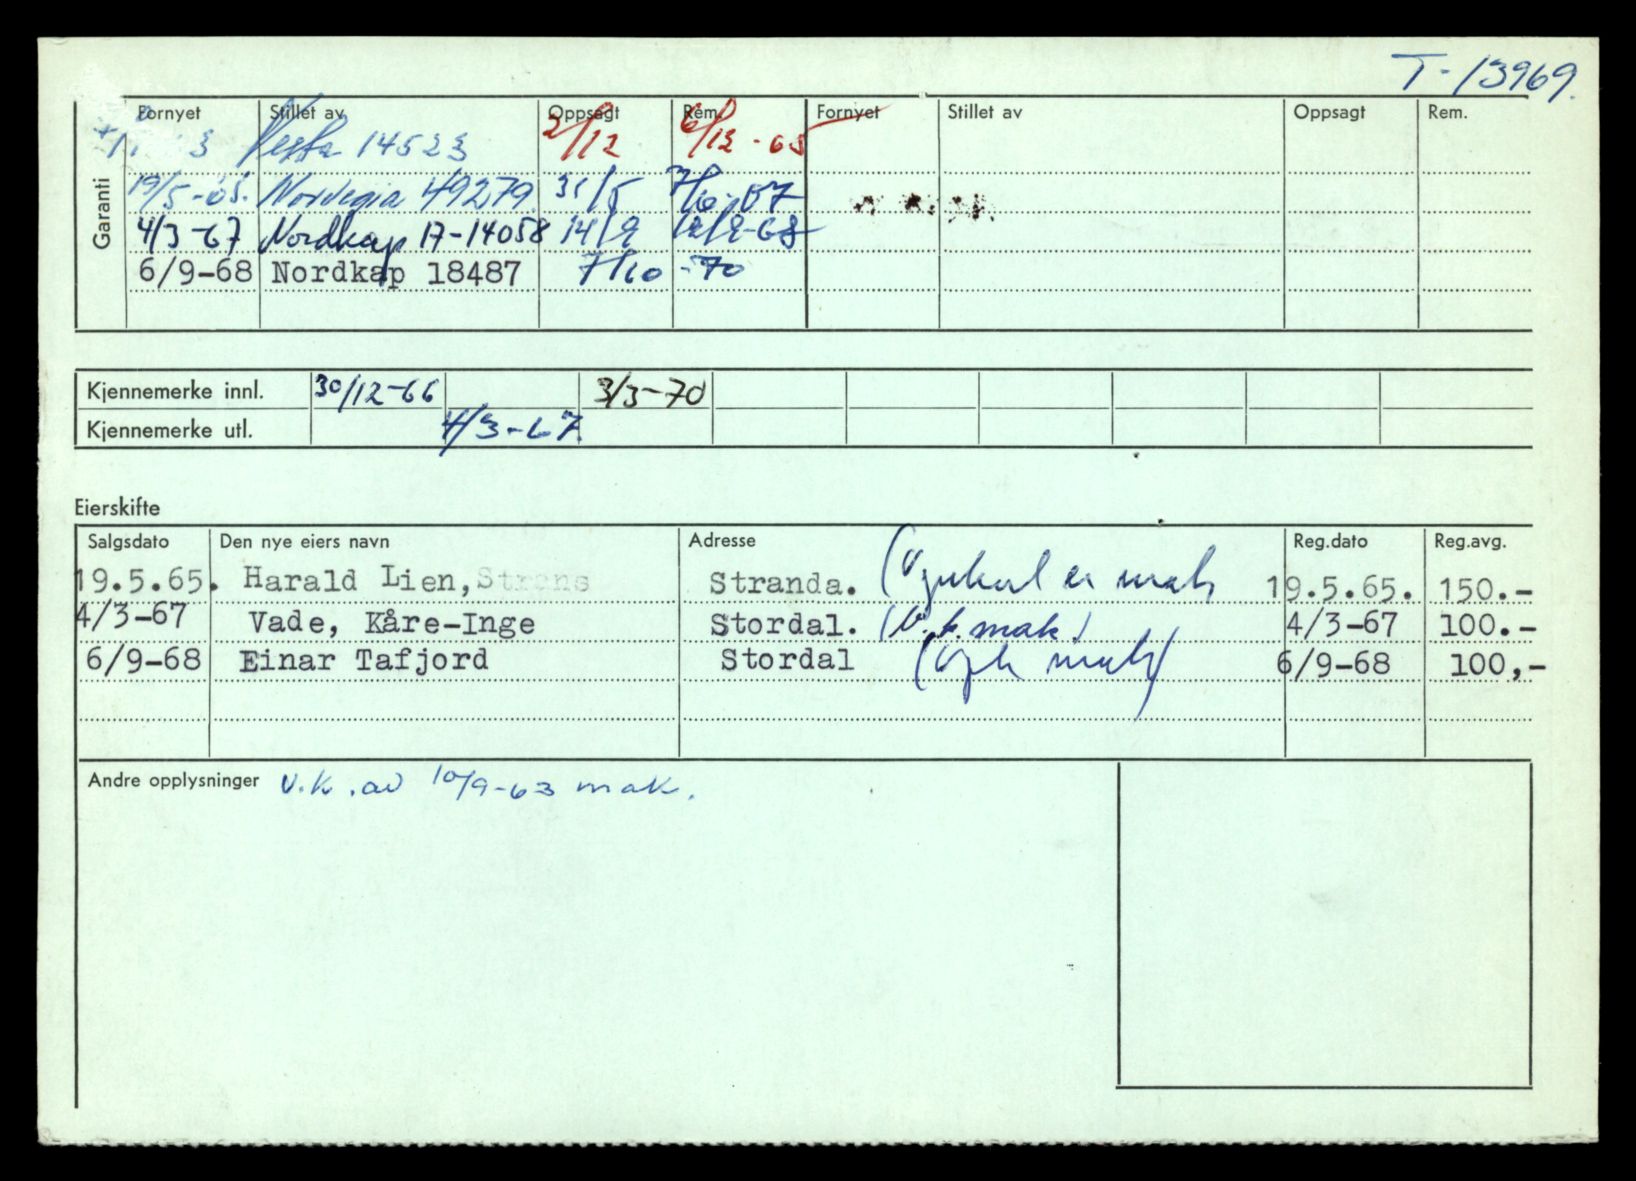 T-13969.
Garanti
Fornyet Stillet av Oppsagt Rem. Fornyet Stillet av Oppsagt Rem.
3 Vesta 14523 2/12 6/12-65
19/5-65. Nordegia 49279 31/5 7/6-67
4/3-67 Nordkap 17-14058 14/9 12/9-68
6/9-68 Nordkap 18487 7/10-70
Kjennemerke innl. 30/12-66 3/3-70
Kjennemerke utl. 4/3-67
Eierskifte
Salgsdato Den nye eiers navn Adresse Reg.dato Reg.avg.
19.5.65. Harald Lien, Stranda. er mak 19.5.65. 150.-
4/3-67 Vade, Kåre-Inge Stordal. (v.k. mak) 4/3-67 100.-
6/9-68 Einar Tafjord Stordal mak) 6/9-68 100,-
Andre opplysninger v.k. av 10/9-63 mak.